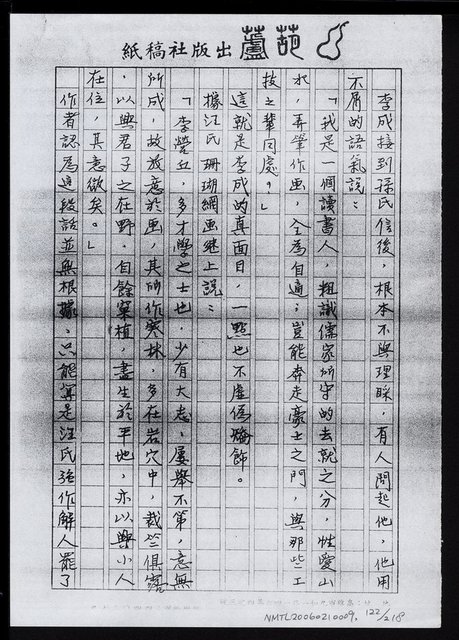 紙稿社版出蘆葩
李成接到孫氏信後，根本不與理睬，有人問起他，他用
不屑的語氣說：
「我是一個讀書人，粗識儒家所守的去就之分，性愛山
水，弄筆作画，全為自適；豈能奔走豪士之門，與那些工
技之輩同處。」
這就是李成的真面目，一點也不虛偽矯飾。
據汪氏珊瑚網画继上說：
「李營丘，多才學之士也，少有大志，屢舉不第，意無
所成，故放意於画，其所作寒林，多在岩穴中，裁竺俱露
，以興君子之在野。自餘窠植，盡生於平地，亦以興小人
在位，其意微矣。」
作者認為這段話並無根據，只能算是汪氏強作解人罷了
NMTL20060210009, 122/218